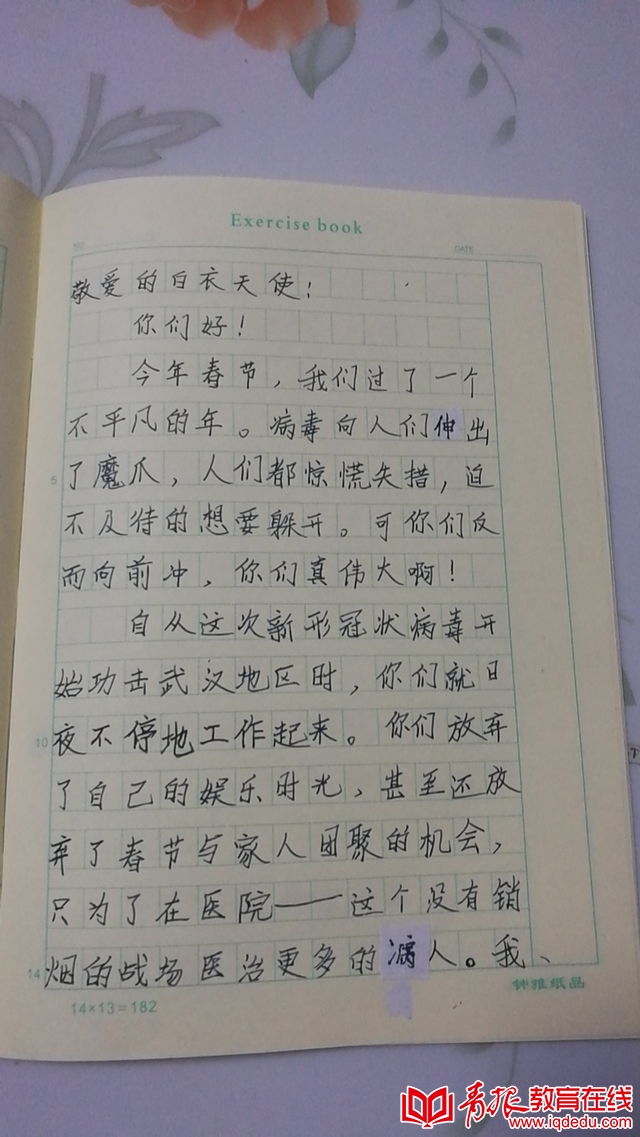 Exercise book
NO.
DATE
敬爱的白衣天使:
你们好!
今年春节,我们过了一个
不平凡的年。病毒向人们伸出
5
了魔爪,人们都惊慌失措,迫
不及待的想要躲开。可你们反
而向前冲,你们真伟大啊!
自从这次新形冠状病毒开
始功击武汉地区时,你们就日
10
夜不停地工作起来。你们放弃
了自己的娱乐时光,甚至还放
弃了春节与家人团聚的机会,
只为了在医院——这个没有销
14
烟的战场医治更多的病人。我、
14×13=182
钟雅纸品
青报教育在线
www.iqdedu.com